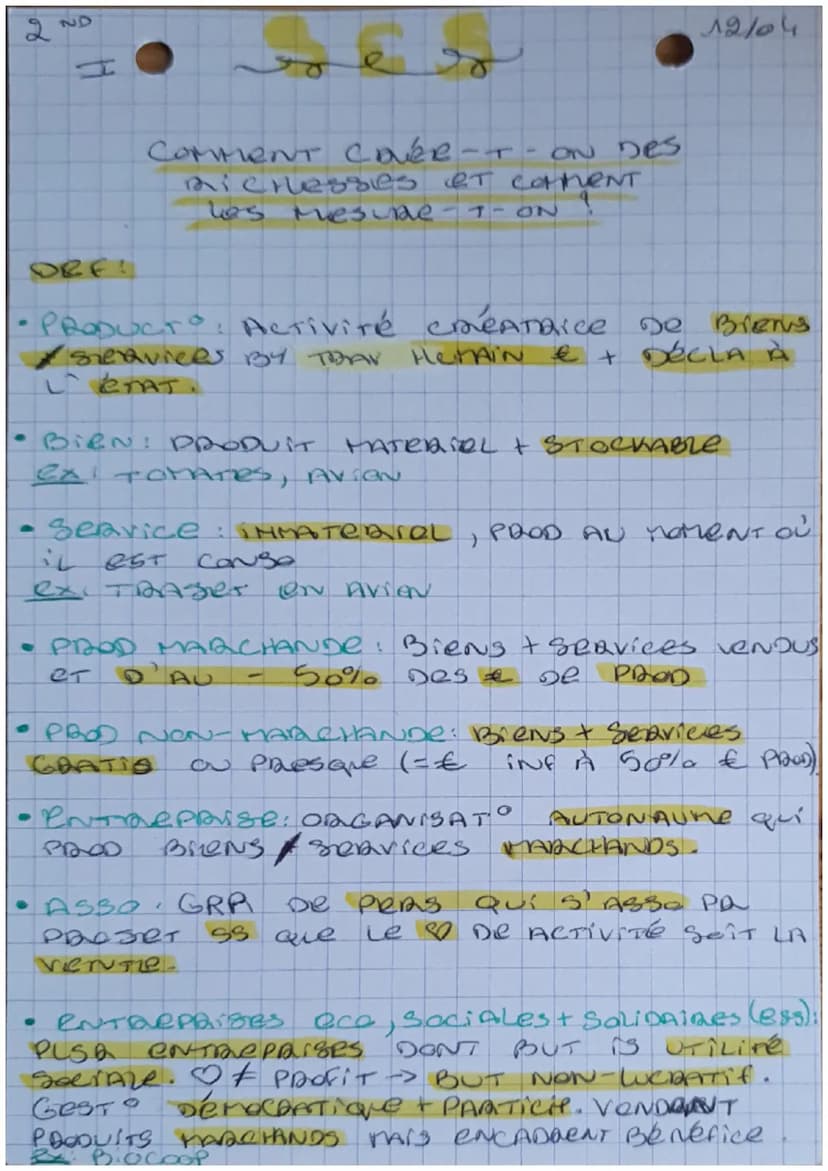 2 ND
I
SES
12/04
COMMENT CRÉE-T-ON DES
RICHESSES ET COMMENT
LES MESURE-T-ON ?
DEF:
• PRODUCT°: ACTIVITÉ CRÉATRICE DE BIENS
/ SERVICES BY TRAV HUMAIN € + DÉCLA À
L'ÉTAT.
• BIEN: PRODUIT MATERIEL + STOCKABLE
EX: TOMATES, AVION
• SERVICE: IMMATERIEL, PROD AU MOMENT OÙ
IL EST CONSO
EX: TRAJET EN AVION
• PROD MARCHANDE: BIENS + SERVICES VENDUS
ET D'AU - 50% DES € DE PROD
• PROD NON-MARCHANDE: BIENS + SERVICES
GRATIS OU PRESQUE (=€ INF À 50% € PROD)
• ENTREPRISE: ORGANISAT° AUTONAUME QUI
PROD BIENS / SERVICES MARCHANDS.
• ASSO: GRP DE PERS QUI S'ASSO PR
PROJET SS QUE LE ♡ DE ACTIVITÉ SOIT LA
VENTE.
• ENTREPRISES ECO, SOCIALES + SOLIDAIRES (ESS):
PLSR ENTREPRISES DONT BUT IS UTILITÉ
SOCIALE. ♡ ≠ PROFIT → BUT NON-LUCRATIF.
GEST° DÉMOCRATIQUE + PARTICIP. VENDANT
PRODUITS MARCHANDS MAIS ENCADRENT BÉNÉFICE.
EX: BIOCOOP